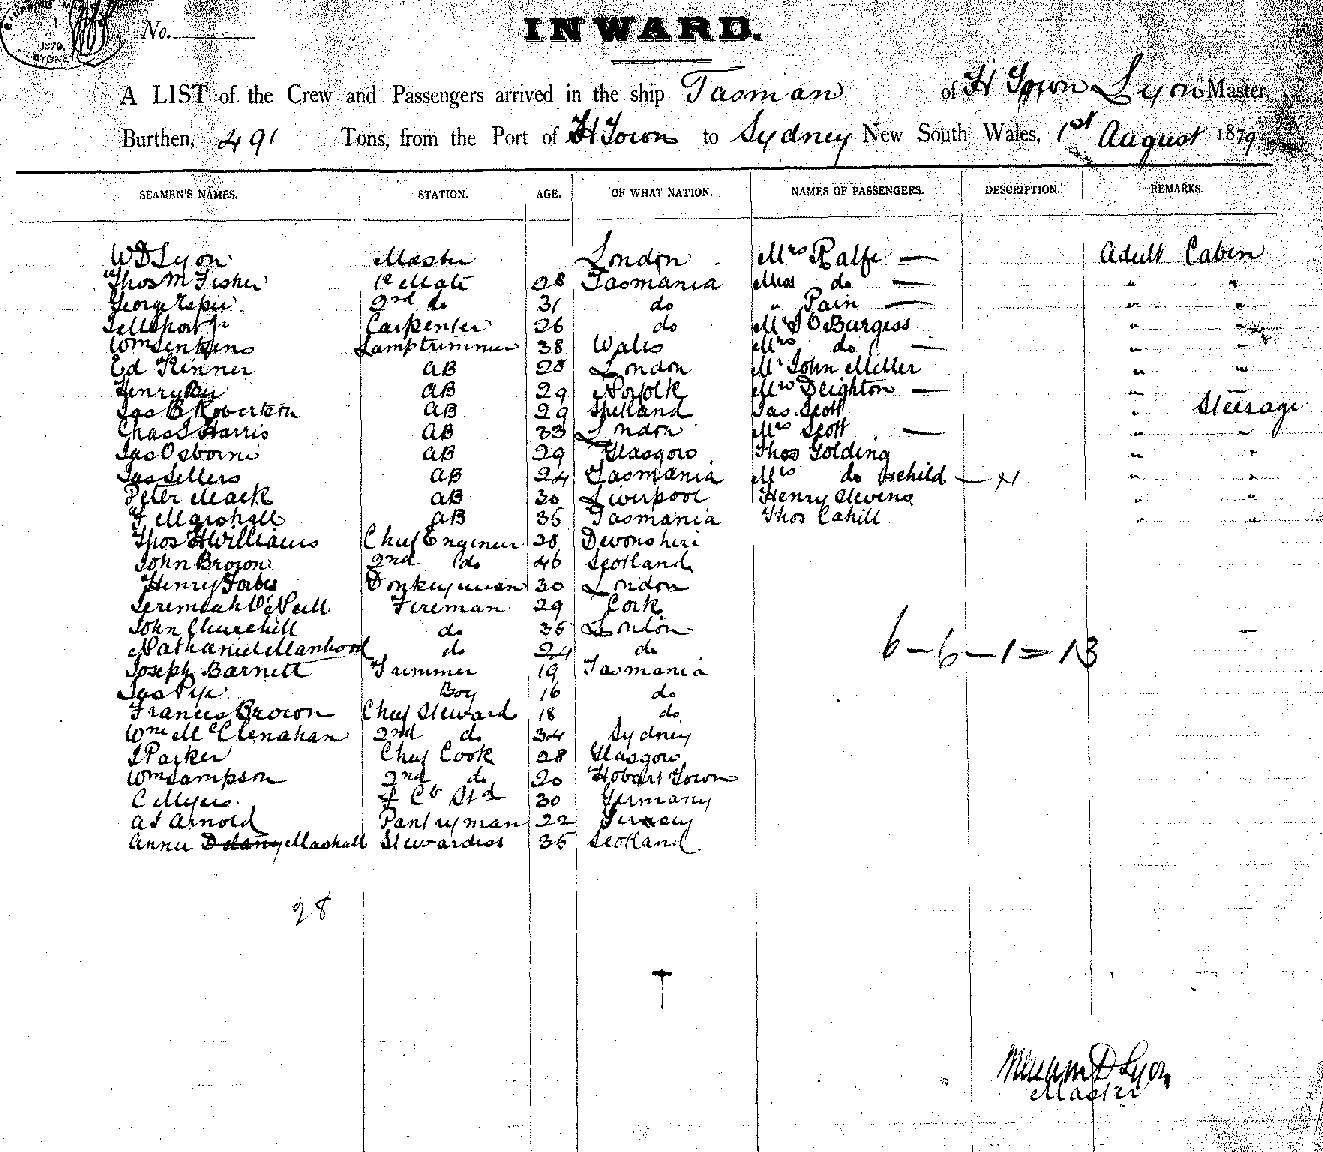 No.
1879
SYDNEY
INWARD.
A LIST of the Crew and Passengers arrived in the ship Tasman of H Town Lyon Master,
Burthen, 491 Tons, from the Port of H Town to Sydney New South Wales, 1st August 1879
SEAMEN'S NAMES. STATION. AGE. OF WHAT NATION. NAMES OF PASSENGERS. DESCRIPTION. REMARKS.
W D Lyon Master London Mrs Ralfe — Adult Cabin
Thos M Fisher 1st Mate 28 Tasmania Miss do — " "
George 2nd do 31 do " Pain — " "
Carpenter 26 do Mr J O Burgess " "
Wm Jenkins Lamptrimmer 38 Wales Mrs do — " "
Ed Kinner AB 28 London Mr John Miller " "
Henry AB 29 Norfolk Mrs Deighton —
Jas B Robertson AB 29 Shetland Jas Scott " Steerage
Chas J Harris AB 33 London Mrs Scott — " "
Jas Osborne AB 29 Glasgow Thos Golding " "
Jas Sellers AB 24 Tasmania Mrs do & child — " "
Peter Mack AB 30 Liverpool Henry Stevens " "
F Marshall AB 35 Tasmania Thos Cahill " "
Thos H Williams Chief Engineer 28 Devonshire
John Brown 2nd do 46 Scotland
Henry Donkeyman 30 London
Jeremiah O'Neill Fireman 29 Cork
John Churchill do 35 London
Nathaniel Manhood do 24 do
Joseph Barnett Trimmer 19 Tasmania
Jas Pye Boy 16 do
Francis Brown Chief Steward 18 do
Wm McClenahan 2nd do 34 Sydney
J Parker Chef Cook 28 Glasgow
Wm Sampson 2nd do 20 Hobart Town
C Myers. F Cn Std 30 Germany
A J Arnold Pantryman 22 Jersey
Annie Delany Mashall Stewardess 35 Scotland
6-6-1=13
28
William D Lyon
Master